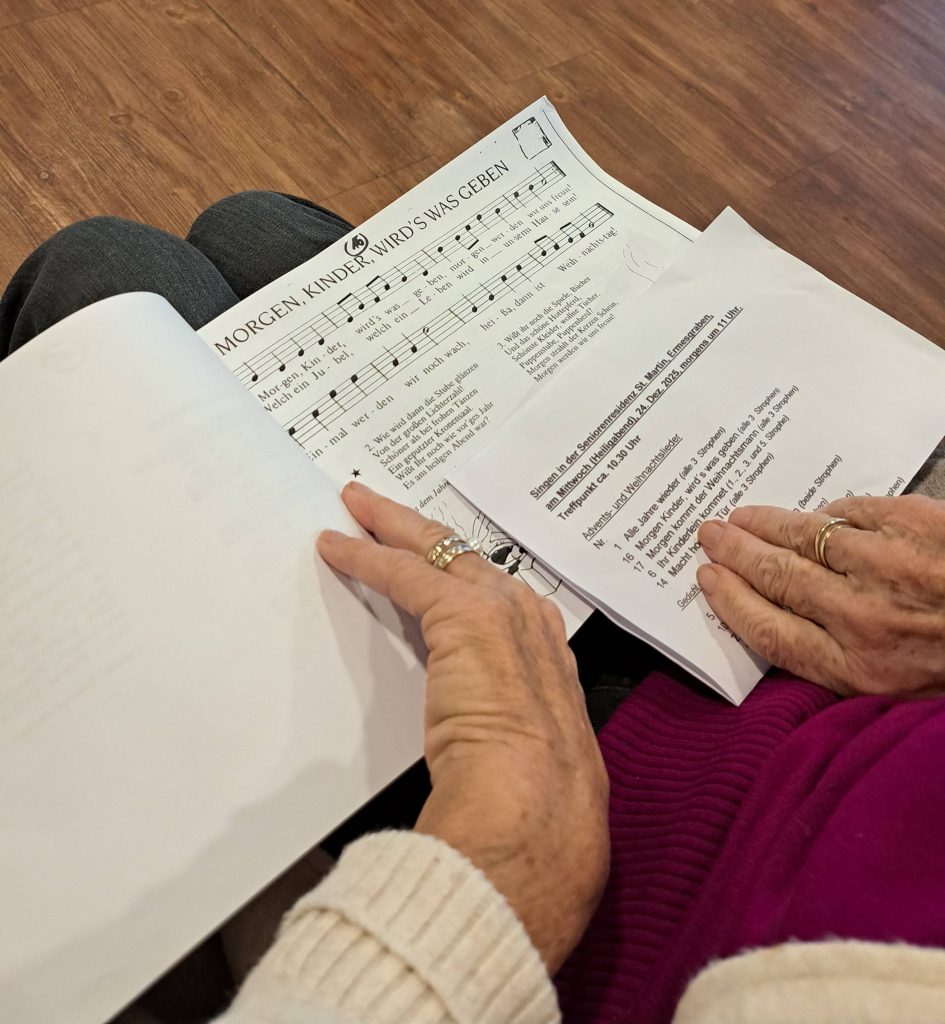 16
MORGEN, KINDER, WIRD'S WAS GEBEN
Mor-gen, Kin - der, wird's was _ ge - ben, mor - gen _ wer - den wir uns freun!
Welch ein Ju - bel, welch ein _ Le - ben wird in _ un-serm Hau - se sein!
Ein - mal wer - den wir noch wach, hei - ßa, dann ist Weih - nachts-tag!
2. Wie wird dann die Stube glänzen
Von der großen Lichterzahl!
Schöner als bei frohen Tänzen
Ein geputzter Kronensaal.
Wißt ihr noch wie vor'ges Jahr
Es am heilgen Abend war?
3. Wißt ihr noch die Spiele, Bücher
Und das schöne Hottepferd,
Schönste Kleider, wollne Tücher,
Puppenstube, Puppenherd?
Morgen strahlt der Kerzen Schein,
Morgen werden wir uns freun!
dem Jahre
Singen in der Seniorenresidenz St. Martin, Ermesgraben,
am Mittwoch (Heiligabend), 24. Dez. 2025, morgens um 11 Uhr
Treffpunkt ca. 10.30 Uhr
Advents- und Weihnachtslieder
Nr.
1 Alle Jahre wieder (alle 3 Strophen)
16 Morgen Kinder, wird's was geben (alle 3 Strophen)
17 Morgen kommt der Weihnachtsmann (alle 3 Strophen)
6 Ihr Kinderlein kommet (1., 2., 3. und 5. Strophe)
14 Macht ho Tür (alle 3 Strophen)
(beide Strophen)
Gedicht
5